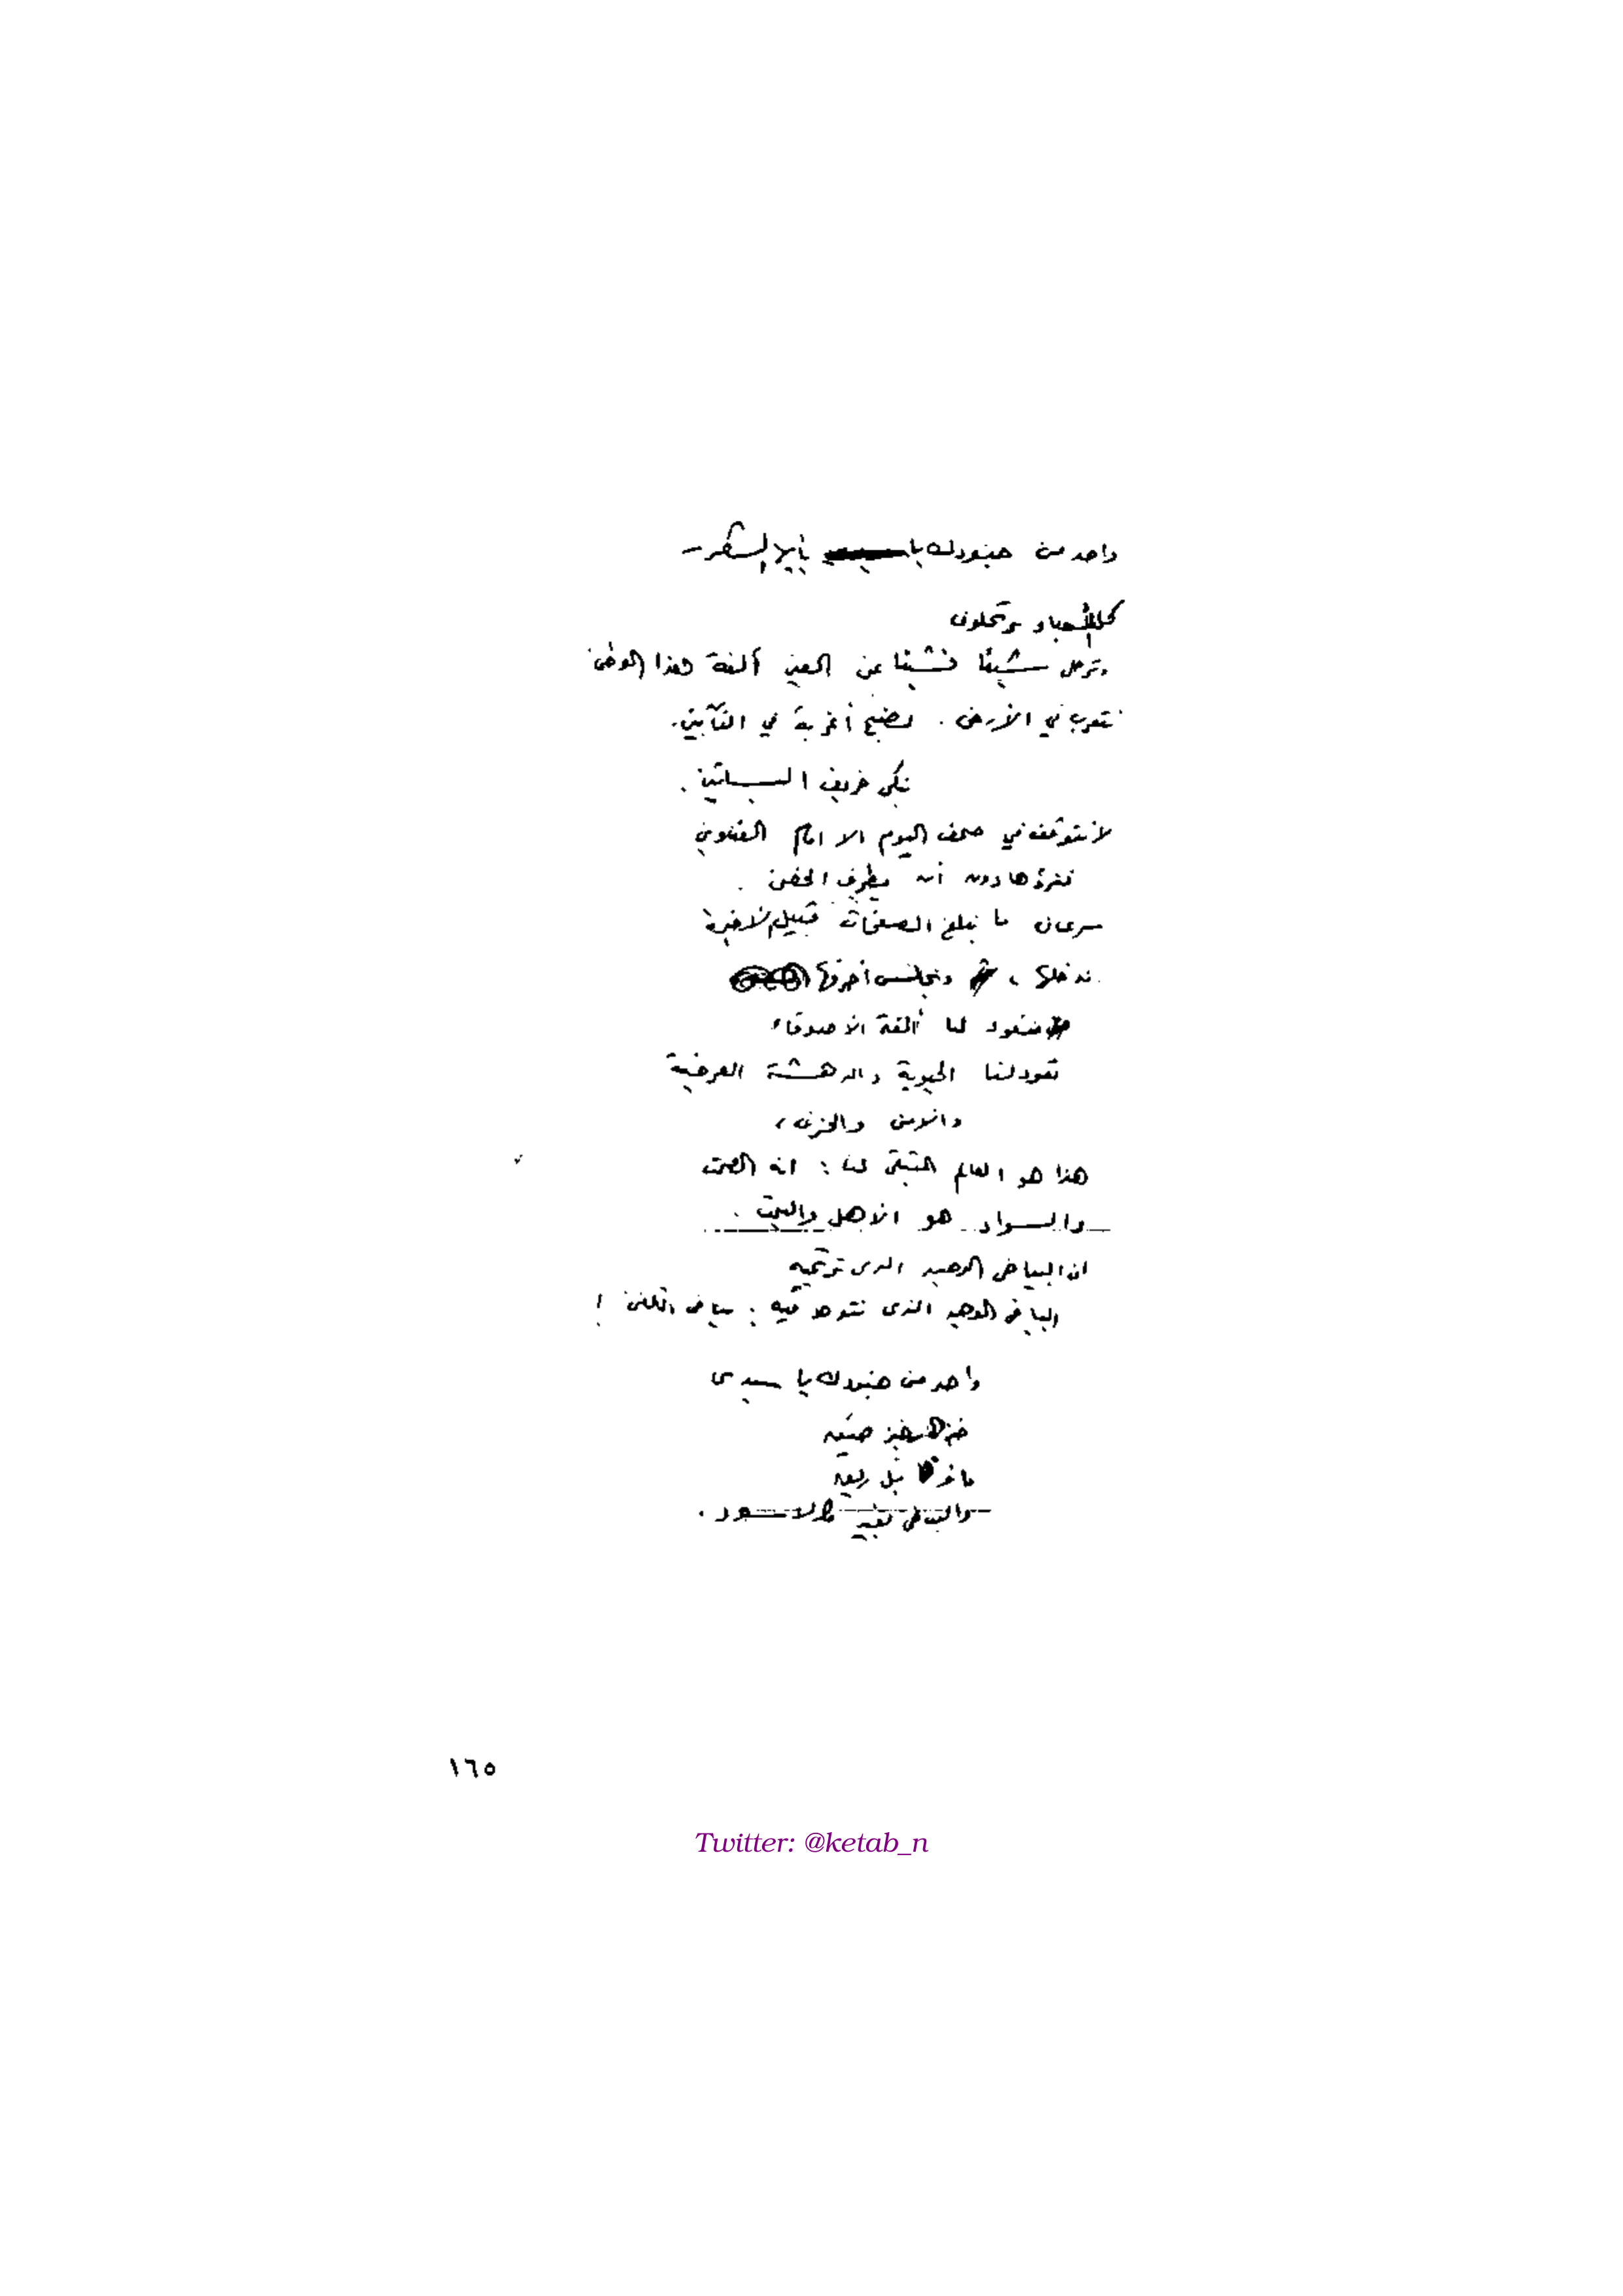 واحد من جنودك يا
كل الأحباء يرتحلون
وترحل شيئاً فشيئاً عن العين ألفة هذا الوطن
نتغرب في الأرض. نصبح أغربة في التآبين.
نبكي خريف البساتين.
لا نتوقف في صحف اليوم الا امام العناوين
نقرؤها دون أن يطرف الجفن.
سرعان ما نبلغ الصفحات قبيل الأخيرة
ندخلها، ونجالس أحرفها
فتعود لنا ألفة الأصدقاء
تعود لنا الحيوية والدهشة العرضية
والأمن والحزن،
هذا هو العالم المتبقي لنا: انه الصمت
والسواد هو الأهل والبيت.
ان البياض الوحيد الذي نرتجيه
البياض الوحيد الذي نتوحد فيه: بياض الكفن!
واحد من جنودك يا سيدي
خبز
ريقه
والبياض الأسود.
١٦٥
Twitter: @ketab_n